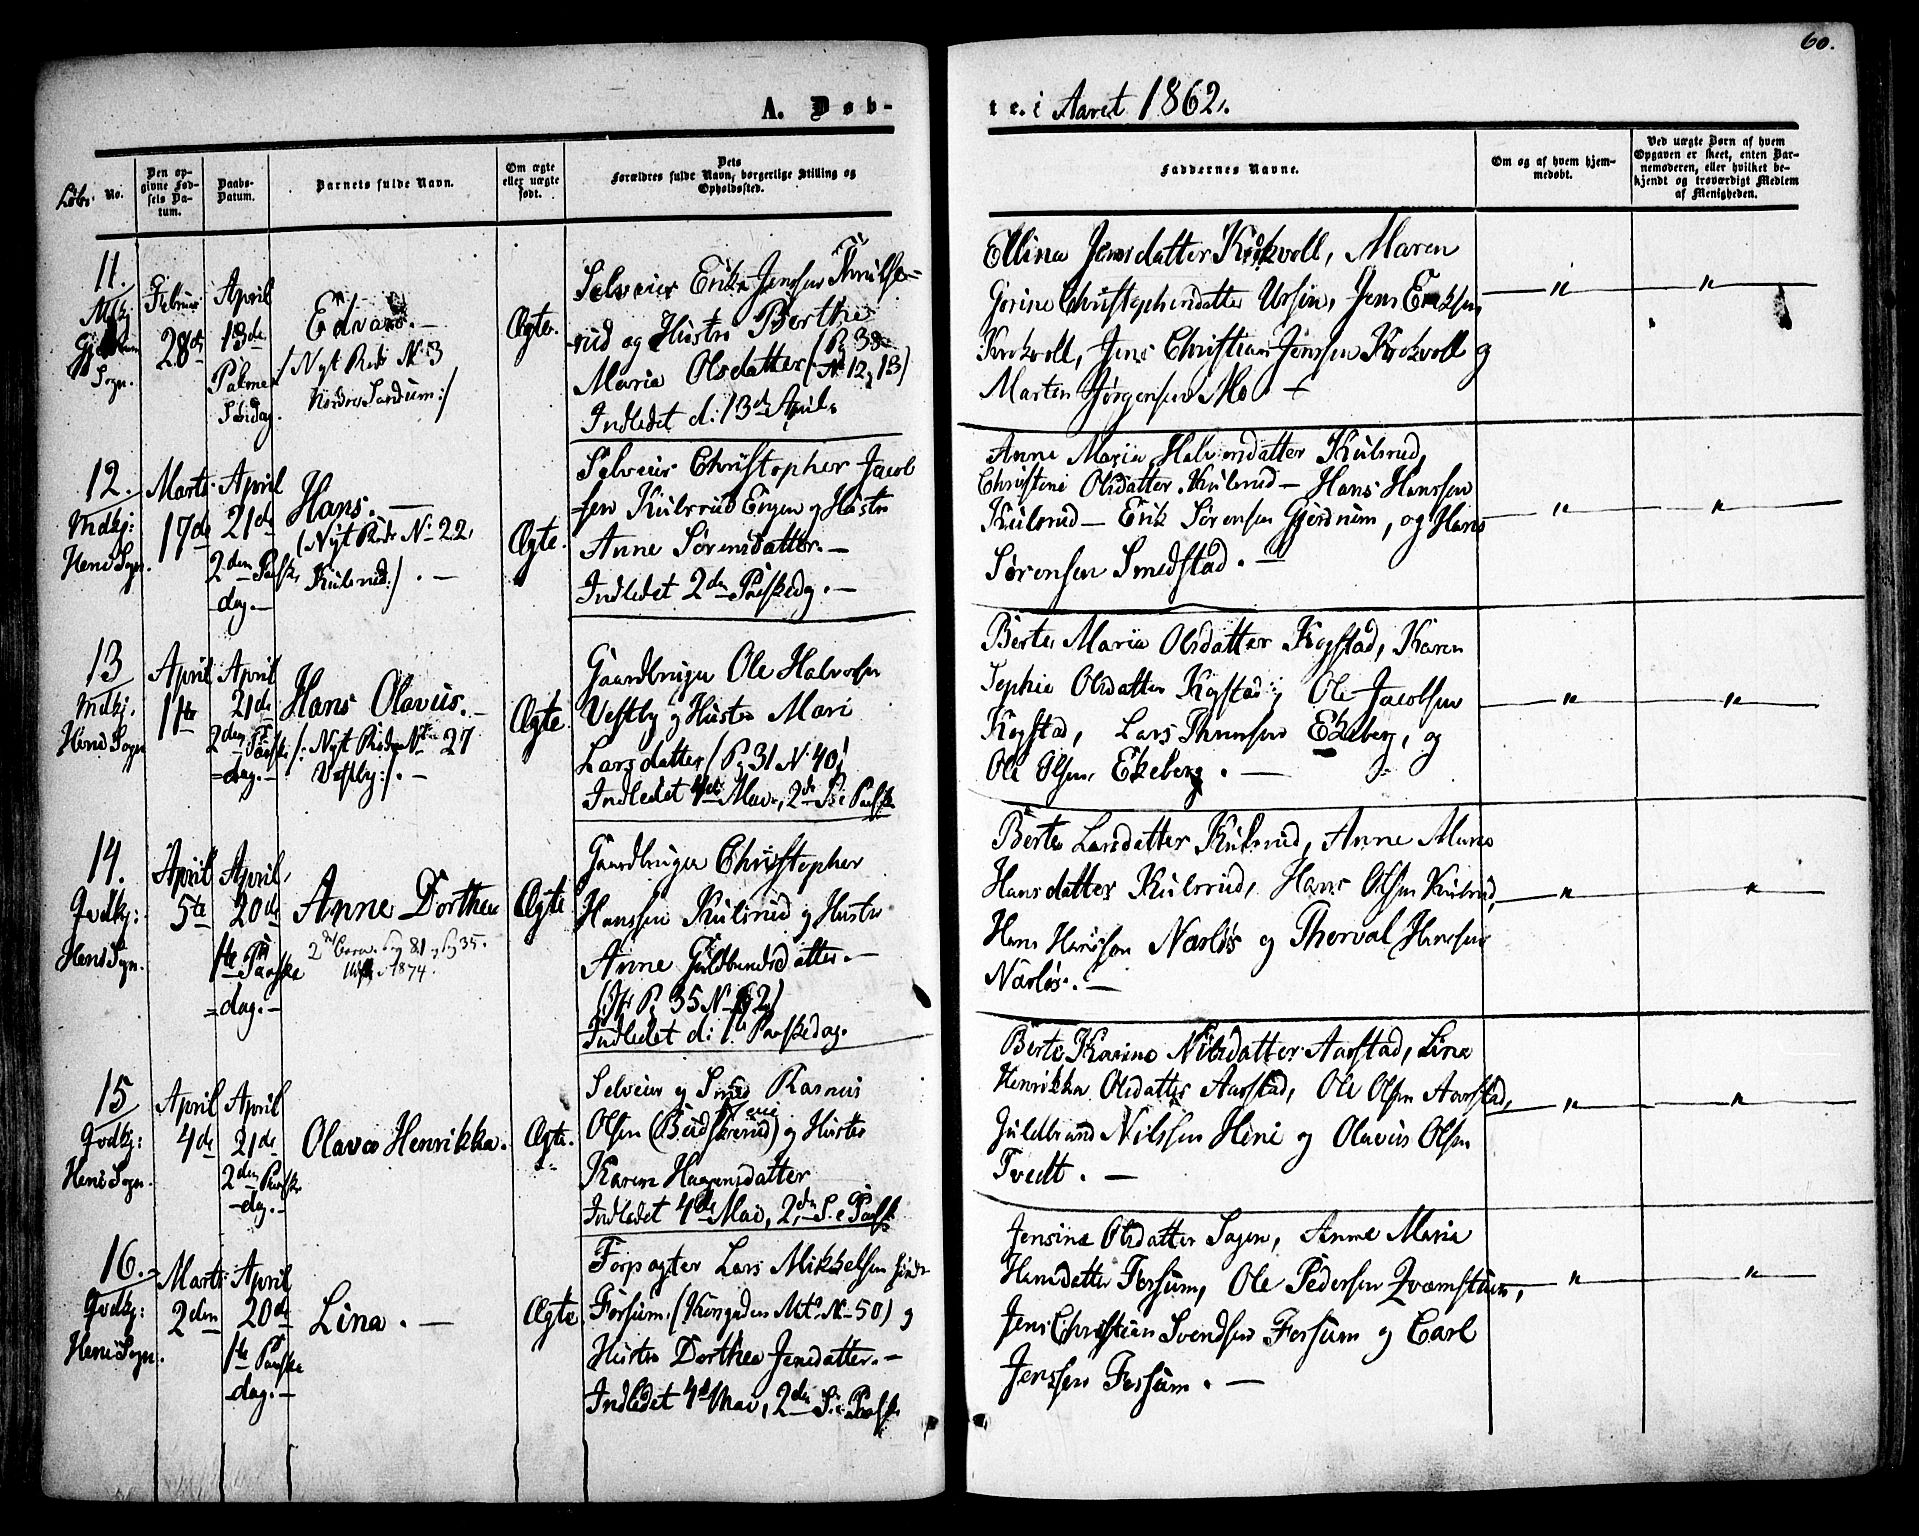 60.
A. Døb-
te. i Aaret 1862.
Løbe No.
Den op-
givne Fød-
sels Da-
tum.
Daabs-
Datum.
Barnets fulde Navn.
Om ægte
eller uægte
født.
Dets
Forældres fulde Navn, borgerlige Stilling og
Opholdssted.
Faddernes Navne.
Om og af hvem hjem-
medøbt.
Ved uægte Børn af hvem
Opgaven er skeet, enten Bar-
nemoderen, eller hvilket be-
kjendt og troværdigt Medlem
af Menigheden.
11.
Mdkj:
Sogn.
Februar
28de
April
13de
Palme
Søndag.
Edvard. —
/Nyt Reds No 3
Nordre Sandum:/
Ægte.
Selveier Erik Jenssen Thrulse-
rud og Hustru Berthe
Maria Olsdatter (P. 38
No 12, 13)
Indledet d: 13de April.
Ellina Jensdatter Krokvoll, Maren
Gorine Christophersdatter Ursin, Jens Eriksen
Krokvoll, Jens Christian Jenssen Krokvoll og
Marten Jørgensen Mo. —
" "
12.
Mdkj:
Hens Sogn.
Marts
17de
April
21de
2den Paaske
-dag. —
Hans. —
(Nyt Reds No 22,
Kulsrud:/. —
Ægte.
Selveier Christopher Jacob
sen Kulsrud Engen og Hustru
Anne Sørensdatter. —
Indledet 2den Paaskedag. —
Anne Maria Halvorsdatter Kulsrud,
Christine Olsdatter Kulsrud — Hans Hanssen
Kulsrud — Erik Sørensen Gjerdrum, og Hans
Sørensen Smedstad. —
" "
13
Mdkj.
Hens Sogn
April
1ste
April
21de
2den Paaske
=dag. —
Hans Olavus. —
/: Nyt Reds No 27
Vestby:/. —
Ægte.
Gaardbruger Ole Halvorsen
Vestby og Hustru Mari
Larsdatter (P. 31 No 40)
Indledet 4de Mai, 2den S. e Paaske
Berte Maria Olsdatter Kogstad, Karen
Sophie Olsdatter Kogstad, Ole Jacobsen
Kogstad, Lars Thronsen Ekeberg, og
Ole Olsen Ekeberg. —
" "
14.
Qvdkj:
Hens Sogn.
April
5te
April,
20de
1ste Paaske
=dag. —
Anne Dorthea
1874.
Ægte
Gaardbruger Christopher
Hanssen Kulsrud og Hustru
Anne Guldbrandsdatter. —
(P. 35 No 62)
Indledet d: 1ste Paaskedag.
Berte Larsdatter Kulsrud, Anne Marie
Hansdatter Kulsrud, Hans Olsen Kulsrud,
Hans Hanssen Nærløs og Thorval Hanssen
Nærløs. —
" "
15
Qvdkj:
Hens Sogn.
April
4de
April
21de
2den Paaske
-dag. —
Olava Henrikka.
Ægte.
Selveier og Smed Rasmus
Olsen (Budskerud) og Hustru
Karen Haagensdatter
Indledet 4de Mai, 2den S. e Paask
Berte Karine Nilsdatter Aarstad, Lina
Henrikka Olsdatter Aarstad, Ole Olsen Aarstad,
Guldbrand Nilssen Heni og Olavus Olsen
Tvedt. —
" "
16.
Qvdkj:
Hens Sogn.
Marts
2den
April
20de
1ste Paaske
-dag. —
Lina. —
Ægte.
Forpagter Lars Mikkelsen
Forsum (Kongsden Mt. No 50) og
Hustru Dorthea Jensdatter. —
Indledet 4de Mai, 2den S. e Paask
Jensine Olsdatter Sagen, Anne Maria
Hansdatter Forsum, Ole Pedersen Qvæmstuen,
Jens Christian Svendsen Forsum og Carl
Jenssen Forsum. —
" "